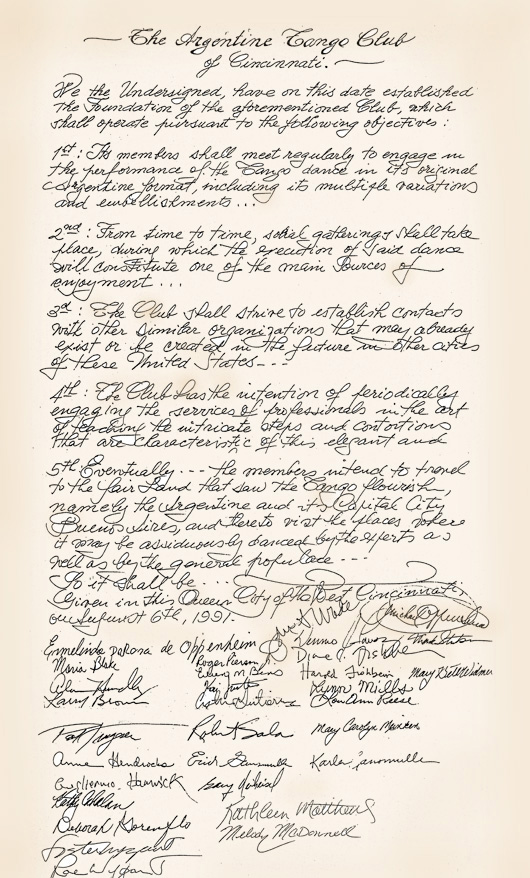 The Argentine Tango Club
of Cincinnati.
We the Undersigned, have on this date established
the Foundation of the aforementioned Club, which
shall operate pursuant to the following objectives:
1st: Its members shall meet regularly to engage in
the performance of the Tango dance in its original
Argentine format, including its multiple variations
and embellishments...
2nd: From time to time, social gatherings shall take
place, during which the execution of said dance
will constitute one of the main sources of
enjoyment....
3d: The Club shall strive to establish contacts
with other similar organizations that may already
exist or be created in the future in other cities
of these United States---
4th: The Club has the intention of periodically
engaging the services of professionals in the art
of teaching the intricate steps and contortions
that are characteristic of this elegant and
5th Eventually--- the members intend to travel
to the fair Land that saw the Tango flourish,
namely the Argentine and its Capital City
Buenos Aires, and thereto visit the places where
it may be assiduously danced by the experts as
well as by the general populace---
So it shall be...
Given in this Queen City of the West, Cincinnati,
on August 6th, 1991.
Ermelinda de Oppenheim
Maria Blake Roger
Harold Fishbein
Larry Brown Lynn Mills
Reese
Robert Mary Carolyn
Anne Hendricks Karla
Guillermo
Kathleen Matthews
Deborah Melody McDonnell